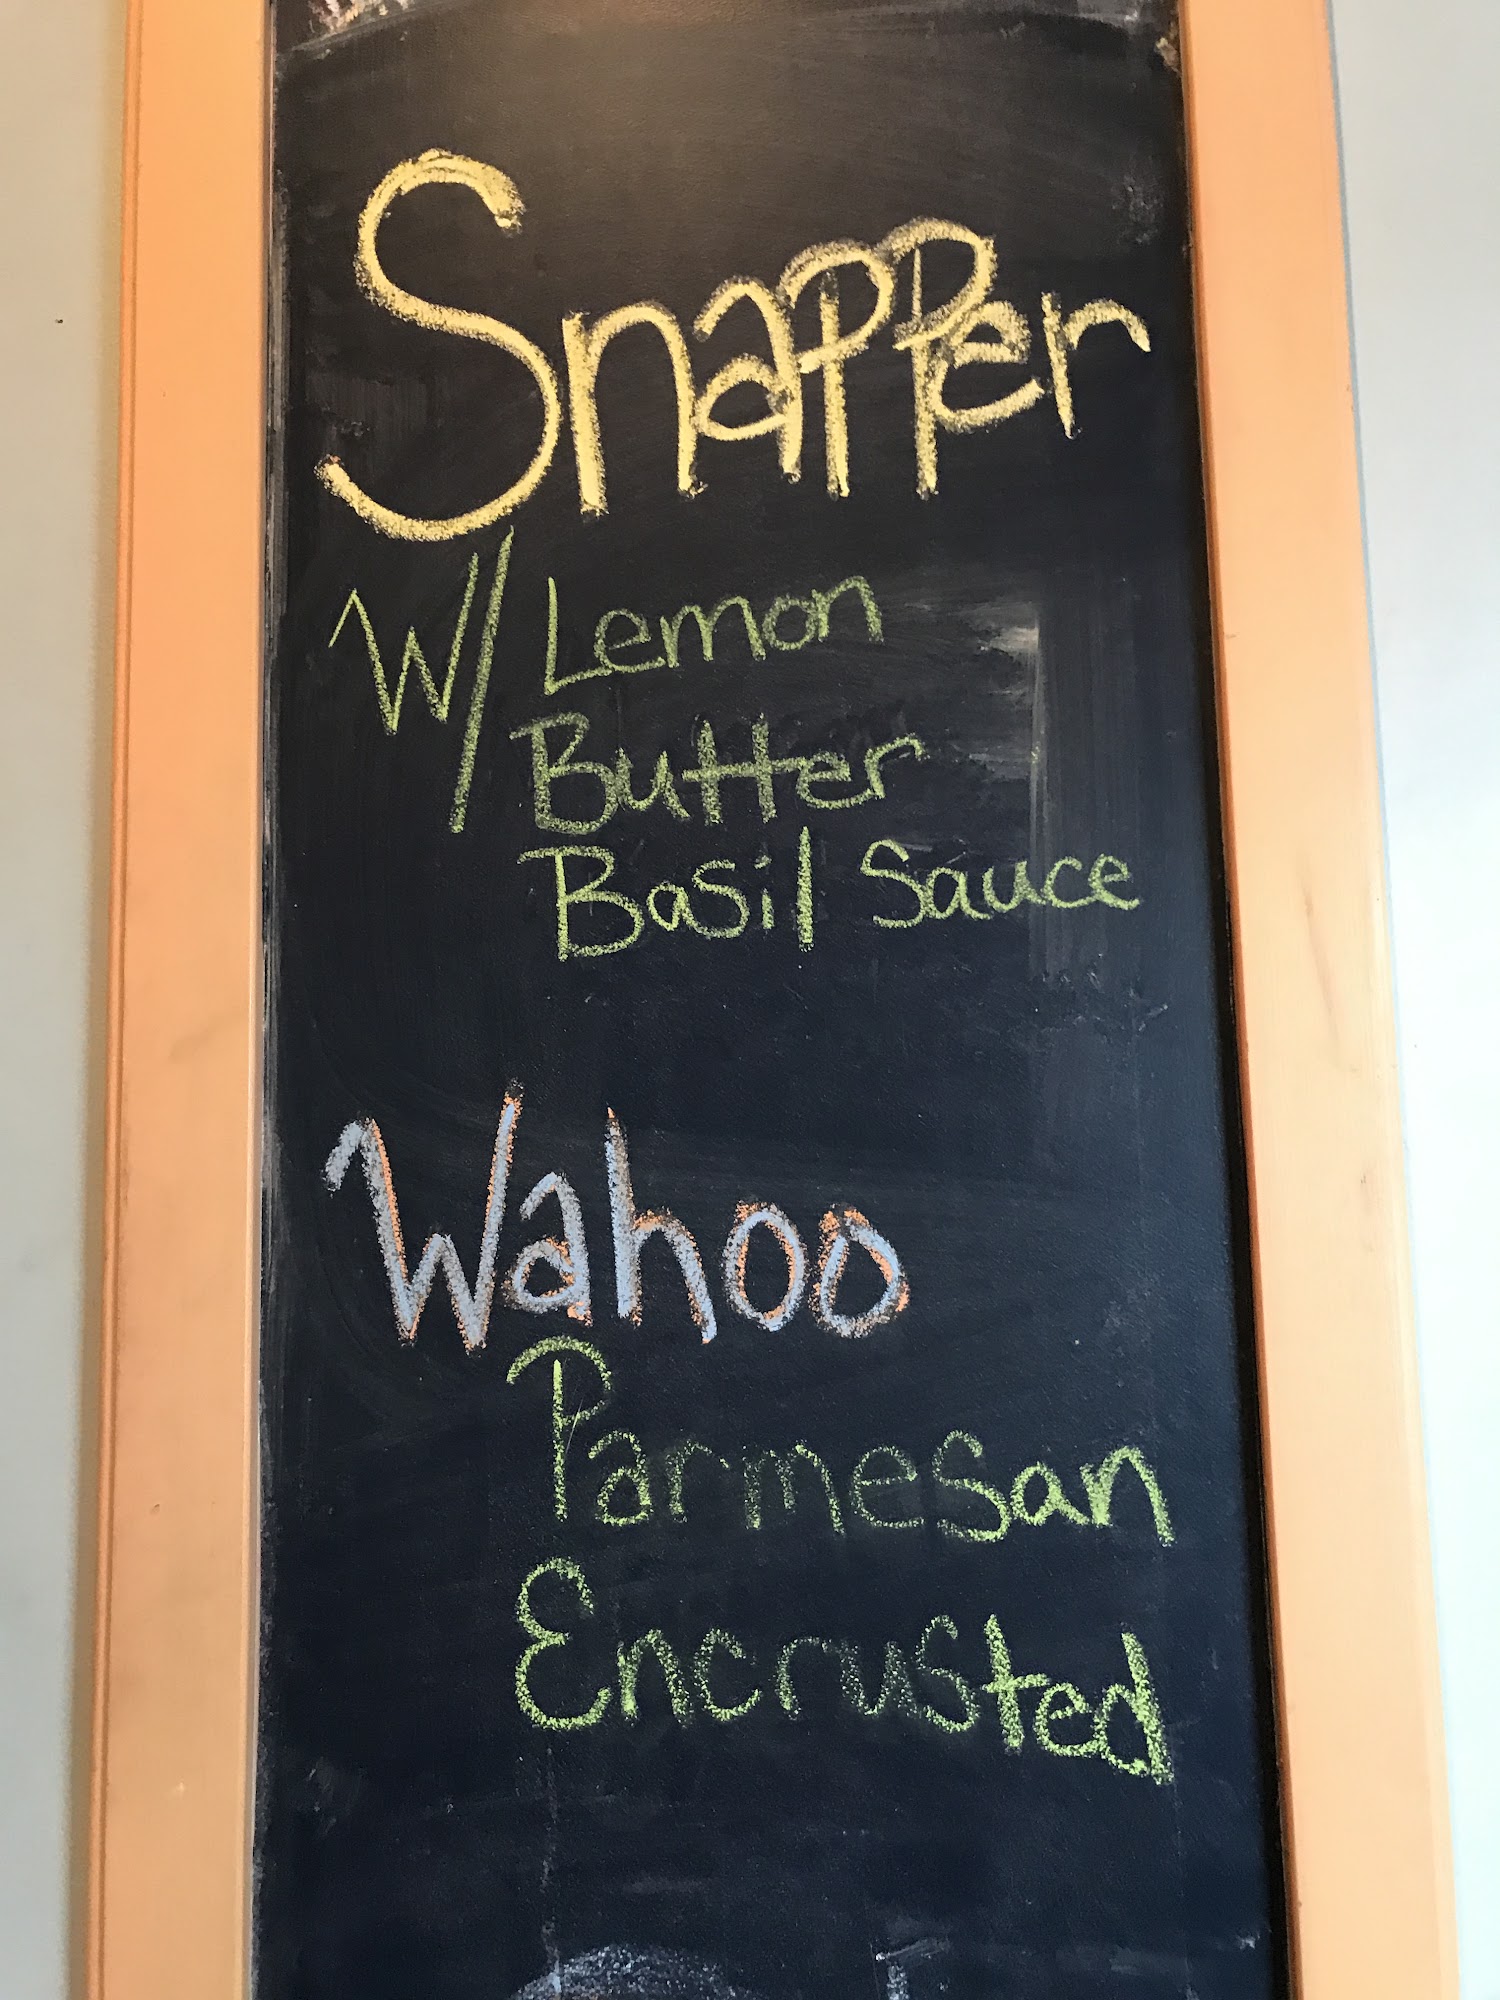 Snapper
W/ Lemon
Butter
Basil Sauce
Wahoo
Parmesan
Encrusted